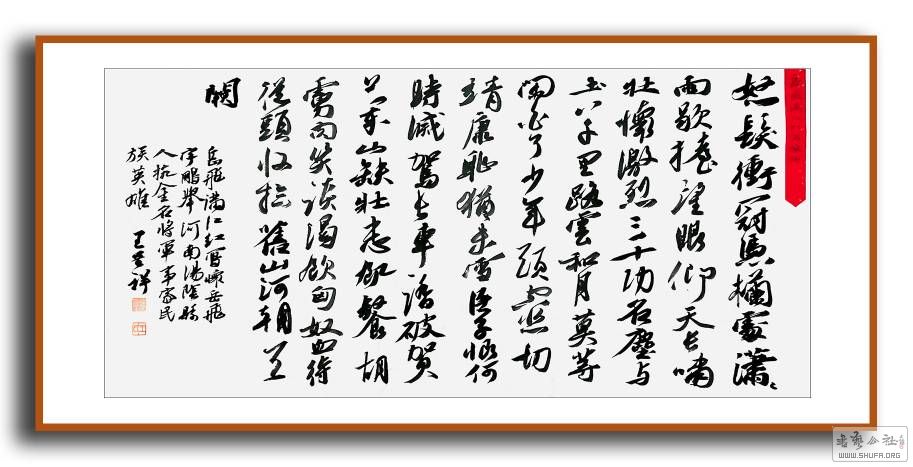 怒髮衝冠馮欄處瀟〻
雨歇擡望眼仰天長嘯
壯懷激烈三十功名塵與
土八千里路雲和月莫等
閒白了少年頭空悲切
靖康恥猶未雪臣子憾何
時滅駕長車踏破賀
蘭山缺壯志飢餐胡
虜肉笑談渴飲匈奴血待
從頭收拾舊山河朝天
闕
岳飛滿江紅寫懷岳飛
字鵬舉河南湯陰縣
人抗金名將軍事家民
族英雄
書藝公社
WWW.SHUFA.ORG